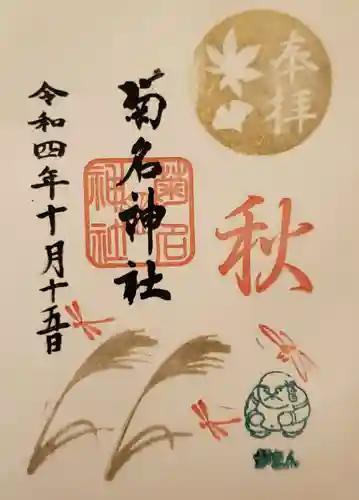 奉拝
秋
菊名神社
菊名
神社
令和四年十月十五日
がまん